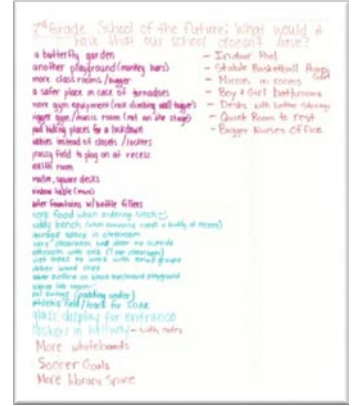 Grade School of the Future: What would it
have that our school doesn't have?
a butterfly garden
another playground (monkey bars)
more class rooms / bigger
a safer place in case of tornadoes
more gym equipment (rock climbing wall bigger)
bigger gym/music room (not on the stage)
hiding places for a lockdown
instead of closets / lockers
grassy field to play on at recess
room
smaller, square desks
table (more)
water fountains w/ bottle fillers
more food when ordering lunch
buddy bench (when someone needs a buddy at recess)
space in classroom
every classroom has door to outside
with sink (in classroom)
areas to work with small groups
wood chips
surface on playground
room
(padding under)
athletic field/track for
glass display for entrance
lockers in hallway - with codes
More whiteboards
Soccer Goals
More library Space
- Indoor Pool
- Stable Basketball Hoops
- Mirrors in rooms
- Boy & Girl bathrooms
- Desks with better storage
- Quiet Room to rest
- Bigger Nurses office